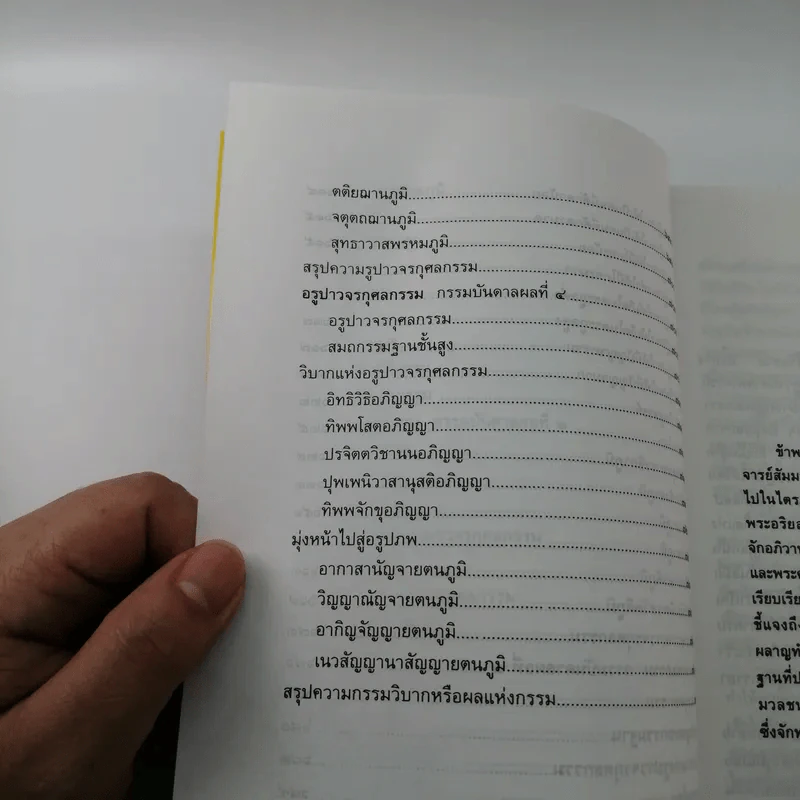 ตติยฌานภูมิ
จตุตถฌานภูมิ
สุทธาวาสพรหมภูมิ
สรุปความรูปาวจรกุศลกรรม
อรูปาวจรกุศลกรรม กรรมบันดาลผลที่ ๔
อรูปาวจรกุศลกรรม
สมถกรรมฐานชั้นสูง
วิบากแห่งอรูปาวจรกุศลกรรม
อิทธิวิธิอภิญญา
ทิพพโสตอภิญญา
ปรจิตตวิชานนอภิญญา
ปุพเพนิวาสานุสติอภิญญา
ทิพพจักขุอภิญญา
มุ่งหน้าไปสู่อรูปภพ
อากาสานัญจายตนภูมิ
วิญญาณัญจายตนภูมิ
อากิญจัญญายตนภูมิ
เนวสัญญานาสัญญายตนภูมิ
สรุปความกรรมวิบากหรือผลแห่งกรรม
ข้าพ
จารย์สัมม
ไปในไตร
พระอริยส
จักอภิวา
และพระ
เรียบเรีย
ชี้แจงถึง
ผลาญทำ
ฐานที่ป
มวลชน
ซึ่งจัก